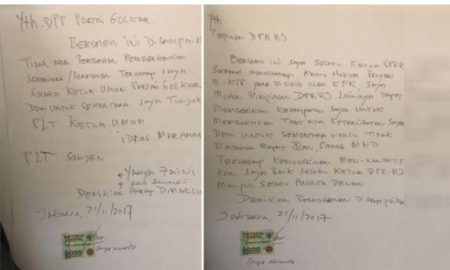 Yth. DPP Partai GOLKAR
BERSAMA INI DISAMPAIK
TIDAK ADA
SEMENTARA/ TERHADAP SAYA
SELAKU KETUA UMUM PARTAI GOLKAR
DAN UNTUK SEMENTARA SAYA TUNJUK
PLT KETUA UMUM
IDRUS MARHAM
PLT SEKJEN
Yahya Zaini
DEMIKIAN HARAP DIMAKLU
JAKARTA 21/11/2017
6000
Setya Novanto
Yth.
PIMPINAN DPR RI
BERSAMA INI SAYA SELAKU KETUA DPR
SEDANG MENGHADAPI KASUS HUKUM PROYEK
E-KTP YANG DISIDIK OLEH KPK, SAYA
MOHON PIMPINAN DPR RI LAINNYA DAPAT
MEMBERIKAN KESEMPATAN SAYA UNTUK
MEMBUKTIKAN TIDAK ADA KETERLIBATAN SAYA
DAN UNTUK SEMENTARA WAKTU TIDAK
DIADAKAN RAPAT PLENO, SIDANG MKD
TERHADAP KEMUNGKINAN MENONAKTIF
KAN SAYA BAIK SELAKU KETUA DPR-RI
MAUPUN SELAKU ANGGOTA DEWAN
DEMIKIAN PERMOHONAN DISAMPAIKA
JAKARTA 21/11/2017
6000
Setya Novanto